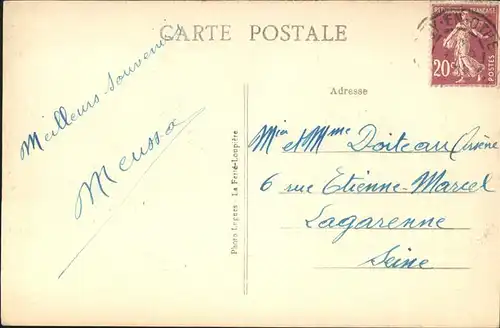 CARTE POSTALE
RÉPUBLIQUE FRANÇAISE
20c
POSTES
Meilleurs souvenirs
Meussa
Photo Legeay La Ferté-Loupière
Adresse
Mr et Mme Doiteau Arsène
6 rue Etienne-Marcel
Lagarenne
Seine